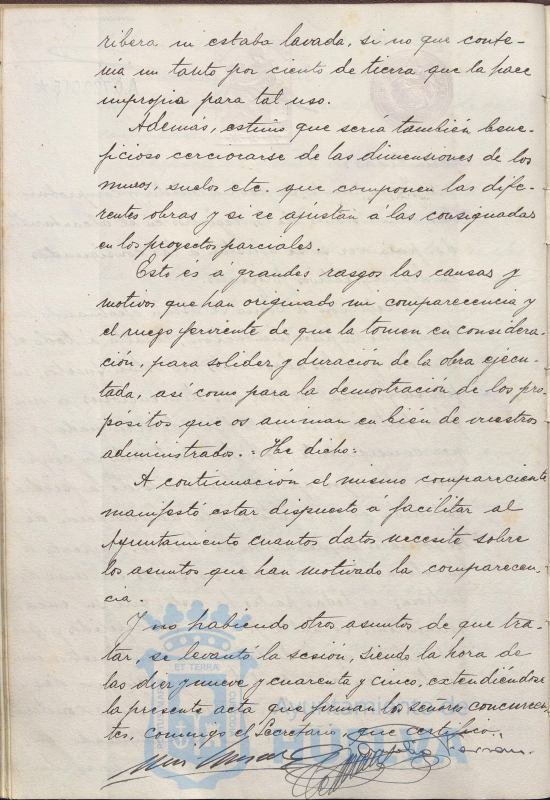 ribera ni estaba lavada, si no que conte-
nía un tanto por ciento de tierra que la hace
impropia para tal uso.
Además, estimo que sería también bene-
ficioso cerciorarse de las dimensiones de los
muros, suelos etc. que componen las dife-
rentes obras y si se ajustan á las consignadas
en los proyectos parciales.
Esto és á grandes rasgos las causas y
motivos que han originado mi comparecencia y
el ruego ferviente de que la tomen en considera-
ción, para solidez y duración de la obra ejecu-
tada, así como para la demostración de los pro-
pósitos que os animan en bién de vuestros
administrados. - He dicho:
A continuación el mismo compareciente
manifestó estar dispuesto á facilitar al
Ayuntamiento cuantos datos necesite sobre
los asuntos que han motivado la comparecen-
cia.
Y no habiendo otros asuntos de que tra-
tar, se levantó la sesión, siendo la hora de
las diez y nueve y cuarenta y cinco, extendiéndose
la presente acta que firman los señores concurren-
tes, conmigo el Secretario, que certifico.
ET TERRA
Ayuntamiento